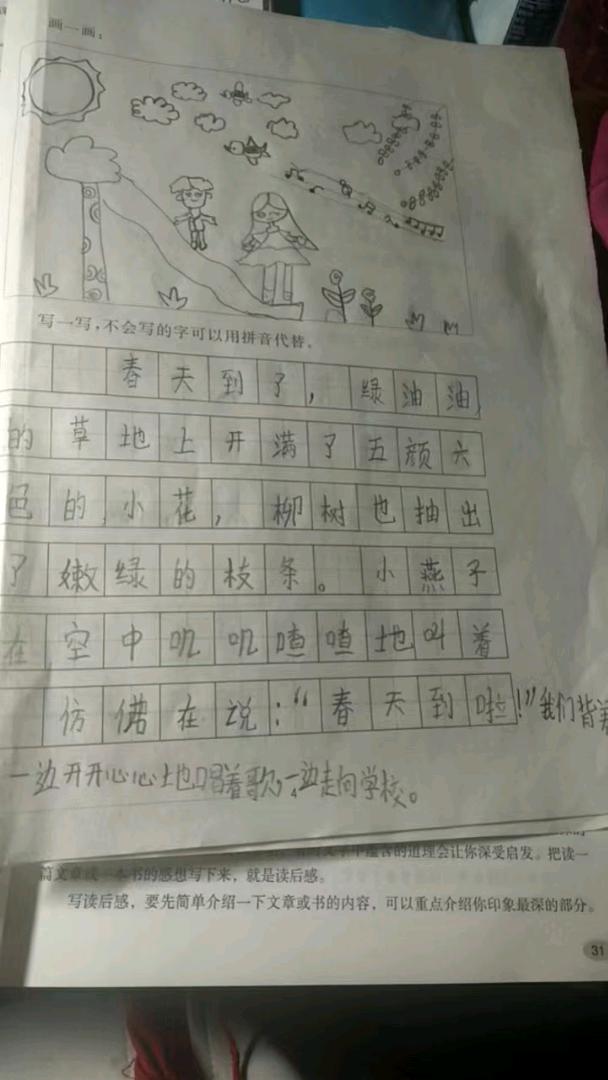 画一画：
写一写，不会写的字可以用拼音代替。
春天到了，绿油油
的草地上开满了五颜六
色的小花，柳树也抽出
了嫩绿的枝条。小燕子
在空中叽叽喳喳地叫着
仿佛在说：“春天到啦！”我们背着
一边开开心心地唱着歌，一边走向学校。
含的道理会让你深受启发。把读一
篇文章或一本书的感想写下来，就是读后感。
写读后感，要先简单介绍一下文章或书的内容，可以重点介绍你印象最深的部分。
31